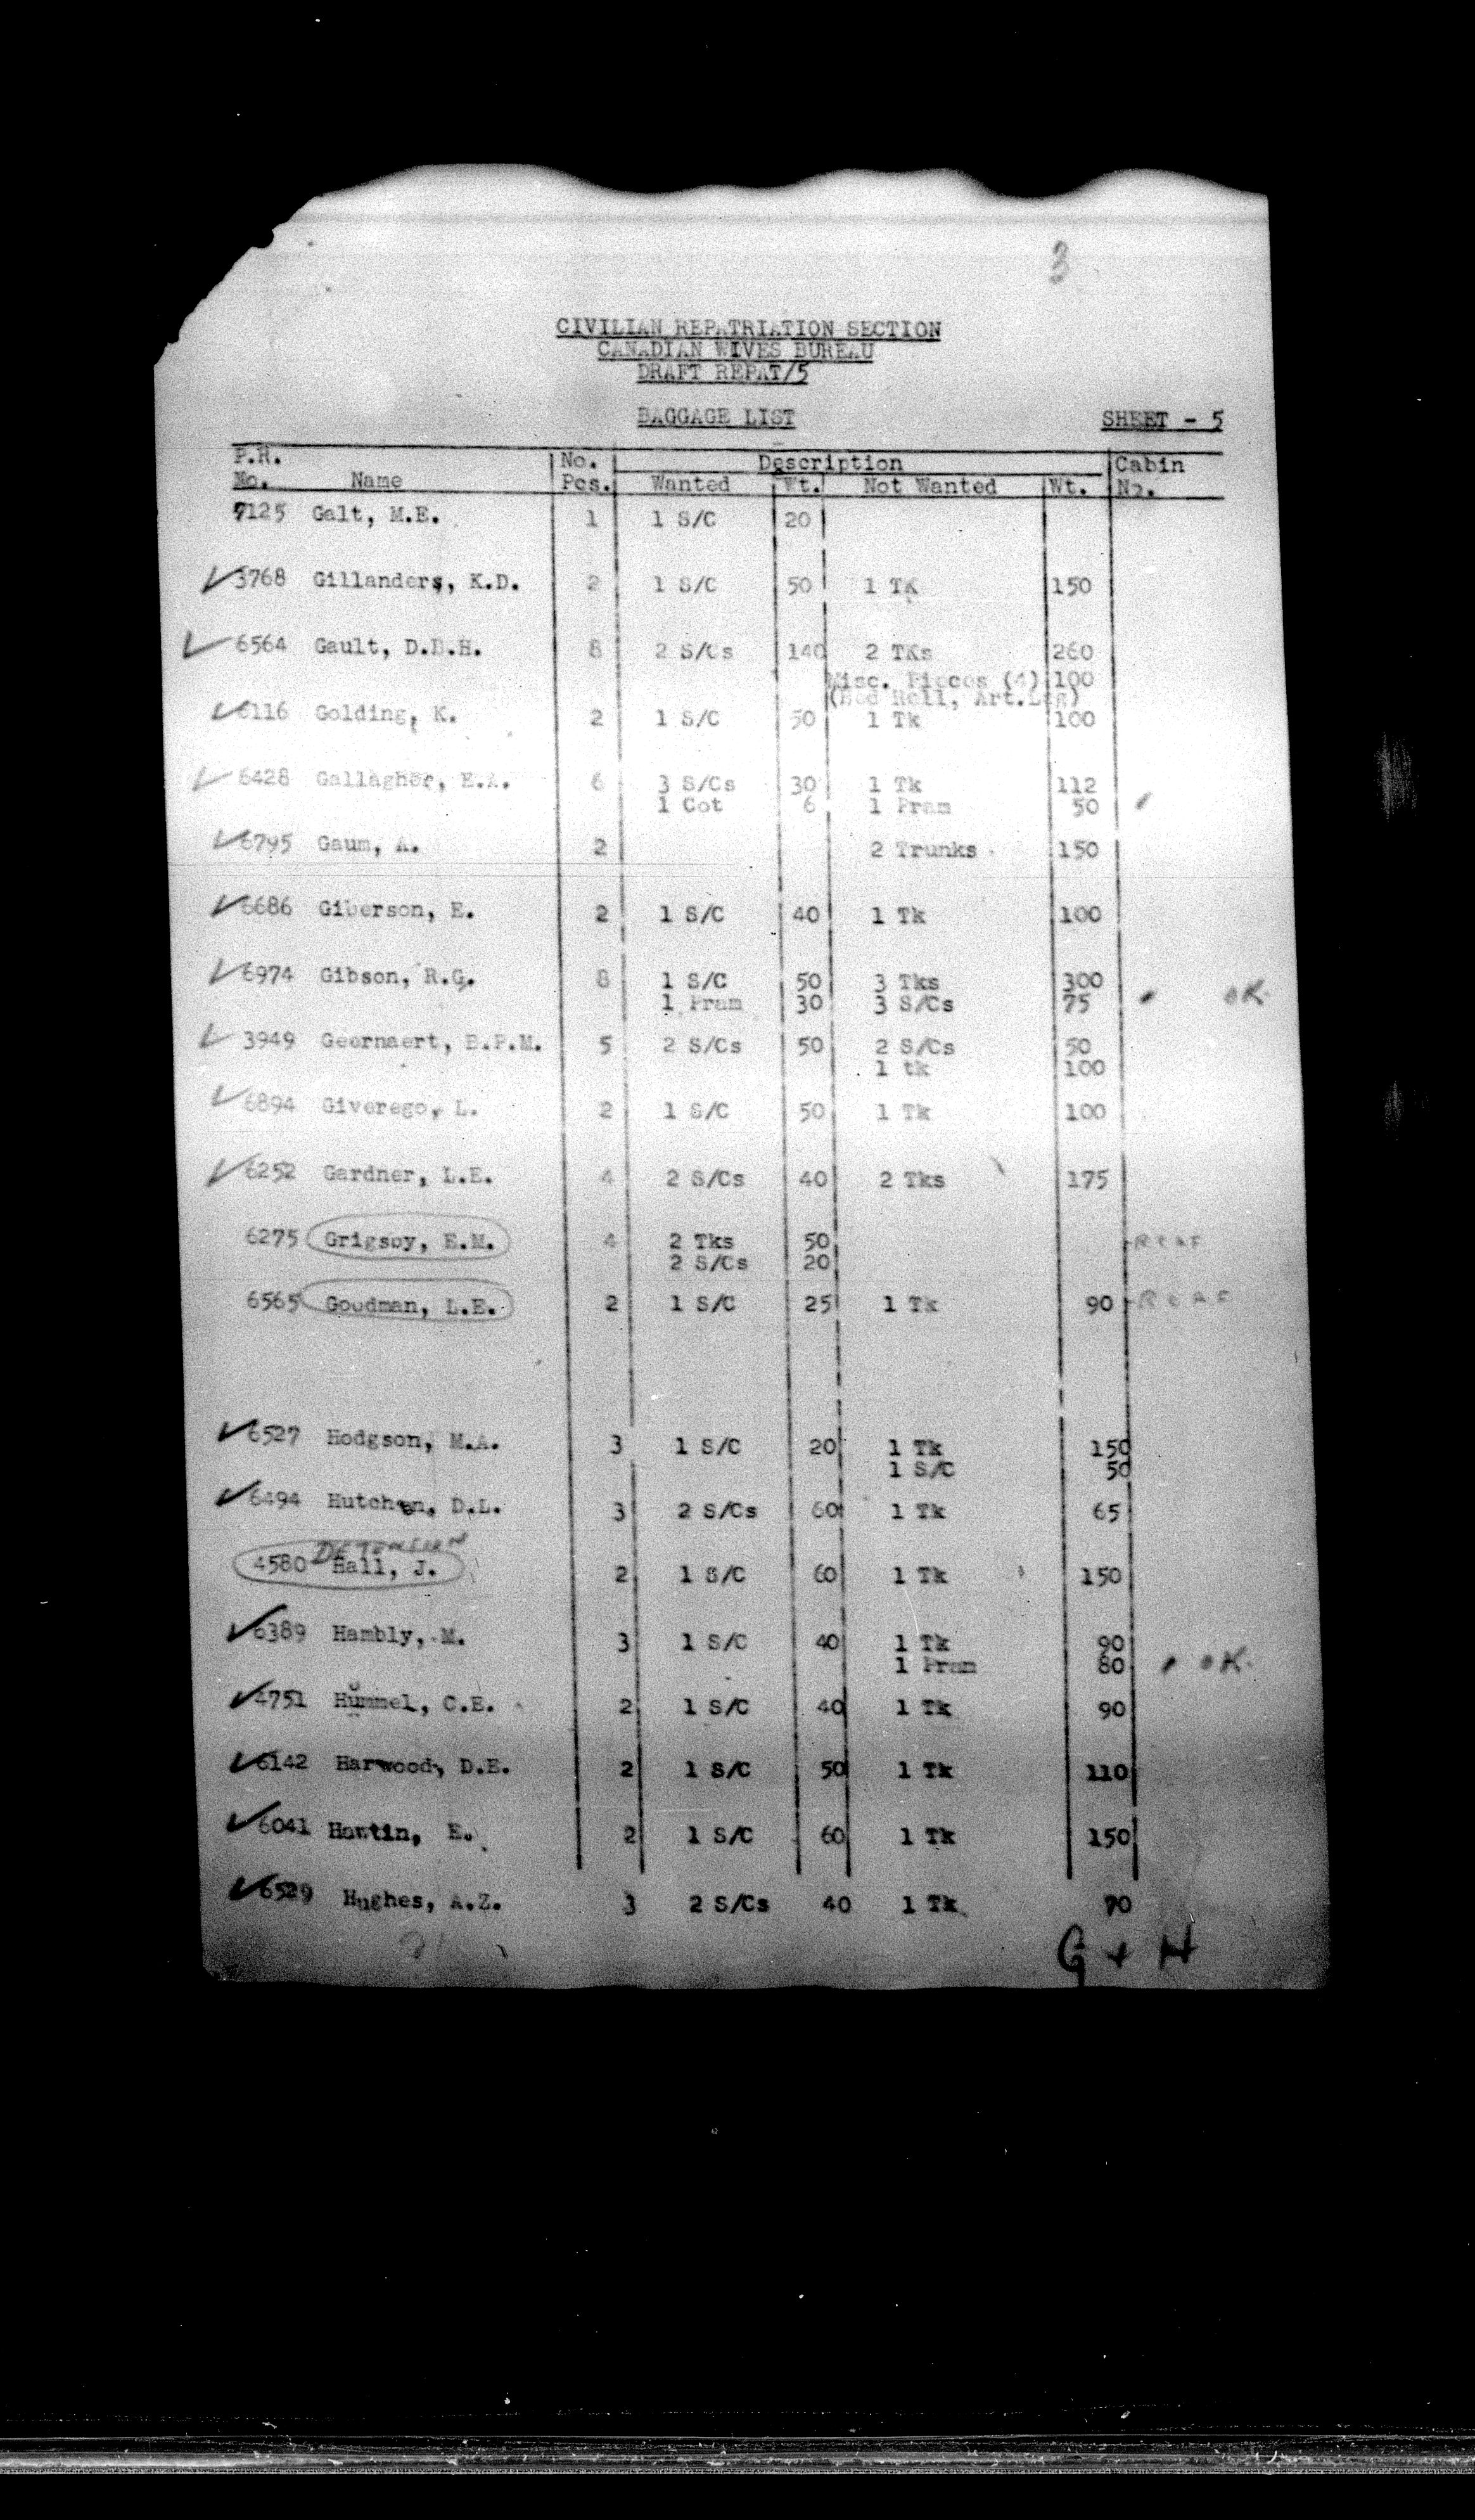 3
CIVILIAN REPATRIATION SECTION
CANADIAN WIVES BUREAU
DRAFT REPAT/5
BAGGAGE LIST SHEET - 5
P.R. No. Description Cabin
No. Name Pcs. Wanted Wt. Not Wanted Wt. No.
7125 Galt, M.E. 1 1 S/C 20
3768 Gillanders, K.D. 2 1 S/C 50 1 TK 150
6564 Gault, D.B.H. 8 2 S/Cs 140 2 TKs 260
Misc. Pieces (4) 100
(Bed Roll, Art.Leg)
6116 Golding, K. 2 1 S/C 50 1 Tk 100
6428 Gallagher, E.A. 6 3 S/Cs 30 1 Tk 112
1 Cot 6 1 Pram 50
6795 Gaum, A. 2 2 Trunks 150
6686 Giberson, E. 2 1 S/C 40 1 Tk 100
6974 Gibson, R.G. 8 1 S/C 50 3 Tks 300
1 Pram 30 3 S/Cs 75 OK
3949 Geernaert, B.P.M. 5 2 S/Cs 50 2 S/Cs 50
1 tk 100
6894 Giverego, L. 2 1 S/C 50 1 Tk 100
6252 Gardner, L.E. 4 2 S/Cs 40 2 Tks 175
6275 Grigsby, E.M. 4 2 Tks 50 RCAF
2 S/Cs 20
6565 Goodman, L.E. 2 1 S/C 25 1 Tk 90 RCAF
6527 Hodgson, M.A. 3 1 S/C 20 1 Tk 150
1 S/C 50
6494 Hutchen, D.L. 3 2 S/Cs 60 1 Tk 65
DETENSION
4580 Hall, J. 2 1 S/C 60 1 Tk 150
6389 Hambly, M. 3 1 S/C 40 1 Tk 90
1 Pram 80 OK
4751 Hummel, C.E. 2 1 S/C 40 1 Tk 90
6142 Harwood, D.E. 2 1 S/C 50 1 Tk 110
6041 Hawtin, E. 2 1 S/C 60 1 Tk 150
6529 Hughes, A.Z. 3 2 S/Cs 40 1 Tk 70
G + H